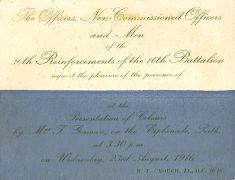 The Officers, Non-Commissioned Officers
and Men
of the
20th Reinforcements of the 16th Battalion
request the pleasure of the presence of
at the
Presentation of Colours
by Mrs T. on the Esplanade, Perth,
at 3.30 p.m.
on Wednesday, 23rd August, 1916